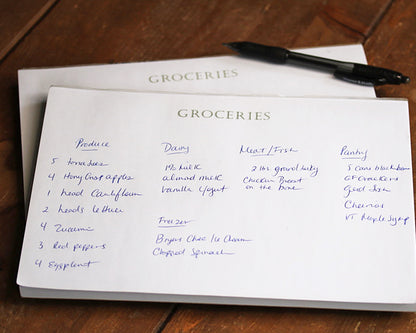 GROCERIES
GROCERIES
Produce
5 tomatoes
4 Honey Crisp apples
1 head Cauliflower
2 heads lettuce
4 Zucchini
3 Red peppers
4 Eggplant
Dairy
1% milk
almond milk
Vanilla Yogurt
Freezer
Bryers Choc Ice Cream
Chopped Spinach
Meat/Fish
2 lbs ground turkey
Chicken Breast
on the bone
Pantry
5 cans black beans
GF Crackers
Cheerios
VT Maple Syrup